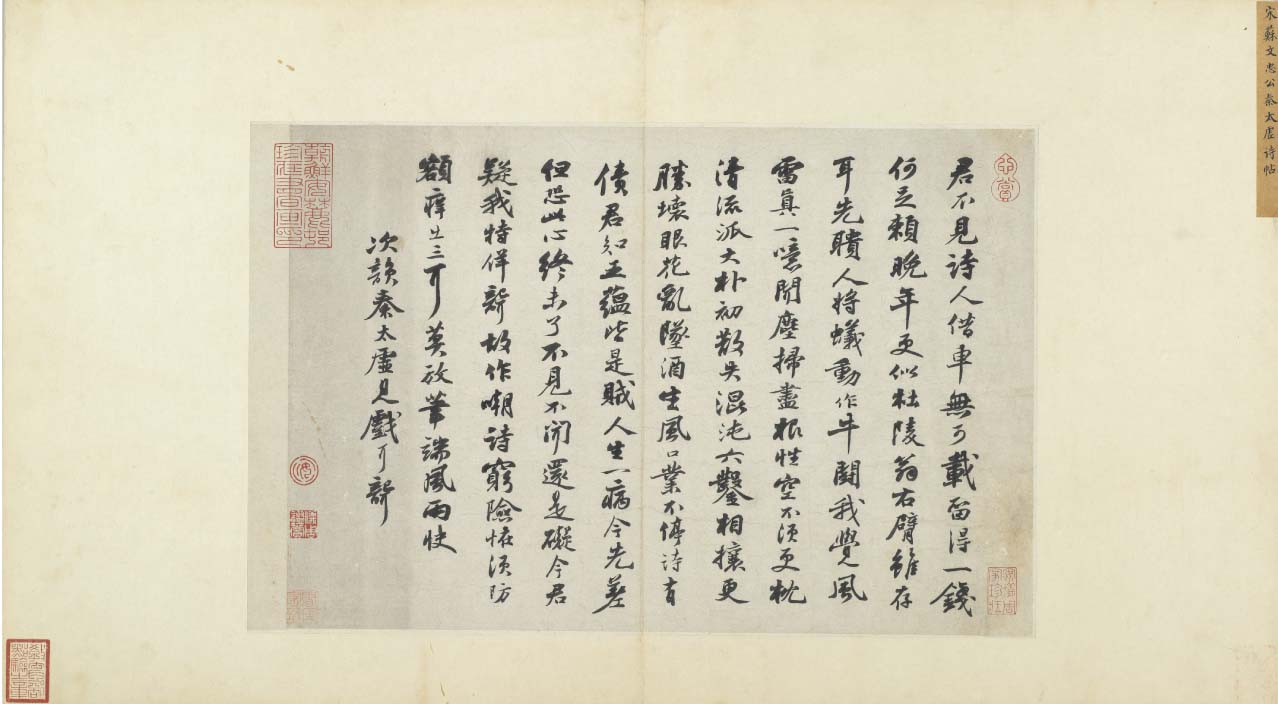 宋蘇文忠公秦太虛詩帖
君不見詩人借車無可載留得一錢
何足賴晚年更似杜陵翁右臂雖存
耳先聵人將蟻動作牛鬪我覺風
雷真一噫聞塵掃盡根性空不須更枕
清流派大朴初散失混沌六鑿相攘更
勝壞眼花亂墜酒生風口業不停詩有
債君知五蘊皆是賊人生一病今先差
但恐此心終未了不見不聞還是礙今君
疑我特佯聾故作嘲詩窮險怪須防
額癢出三耳莫放筆端風雨快
次韻秦太虛見戲耳聾